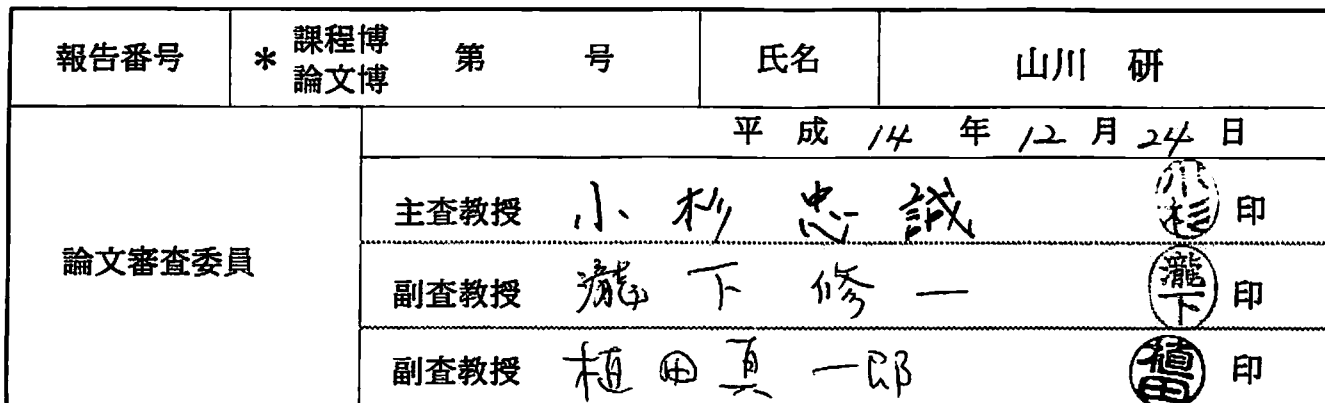 報告番号 * 課程博 論文博 第 号 氏名 山川 研
平成 14 年 12 月 24 日
論文審査委員
主査教授 小杉 忠誠 小杉 印
副査教授 瀧下 修一 瀧下 印
副査教授 植田真一郎 植田 印